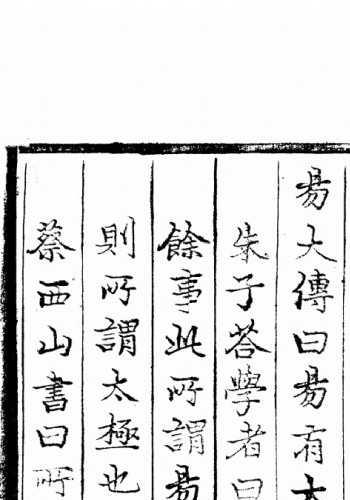 易大傳曰易有太
朱子答學者曰
餘事此所謂易
則所謂太極也
蔡西山書曰所